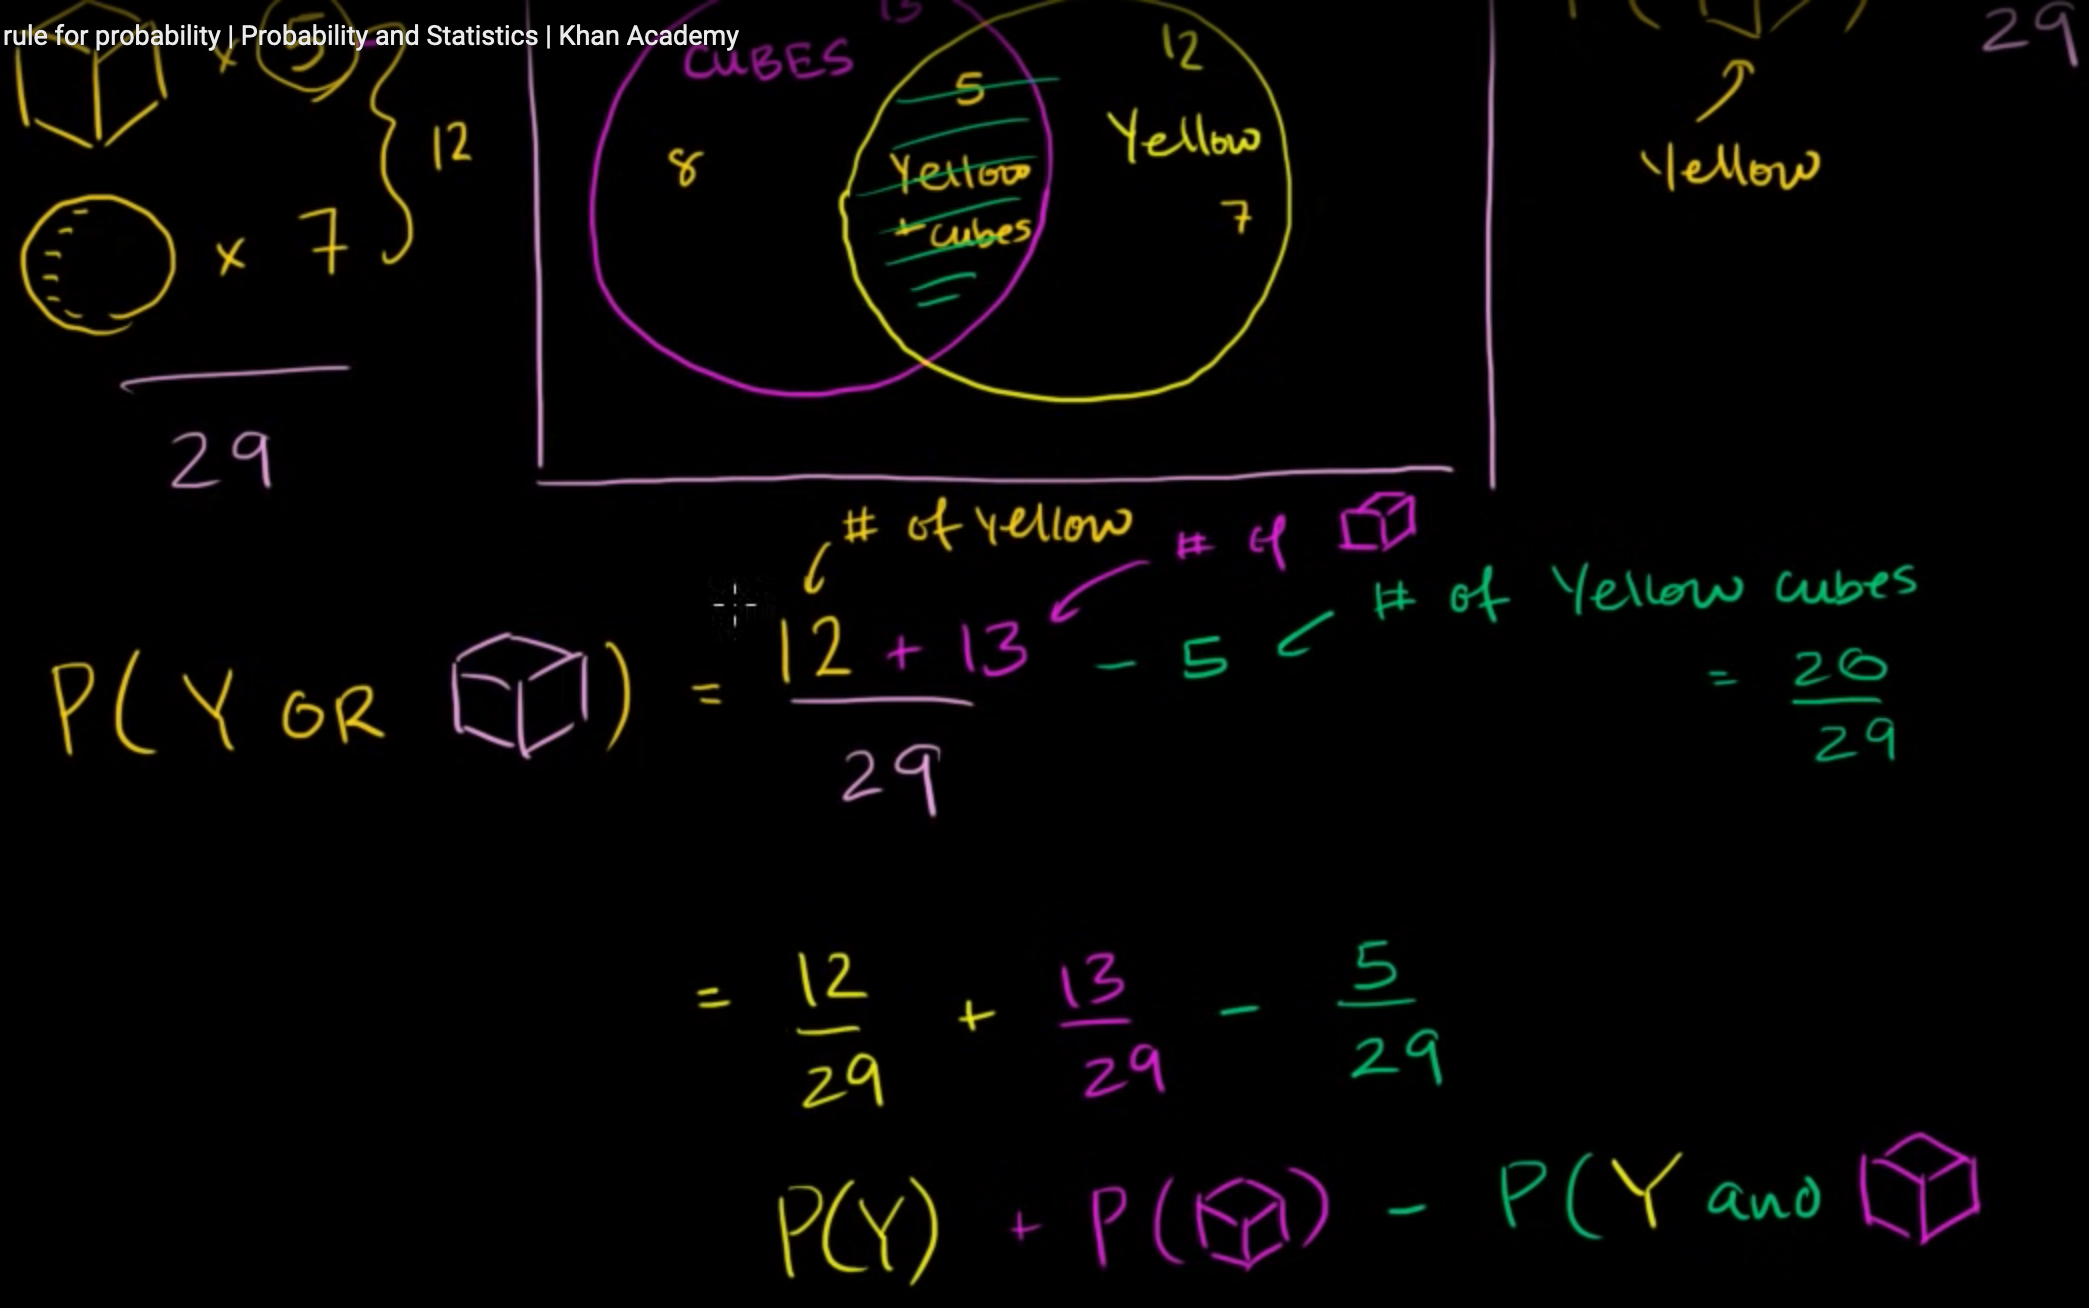 rule for probability | Probability and Statistics | Khan Academy
x 5
12
x 7
29
13
CUBES
12
5
8
Yellow
+ cubes
Yellow
7
29
Yellow
# of yellow
# of
# of Yellow cubes
P(Y OR ) = 12 + 13 - 5 = 20
29 29
= 12/29 + 13/29 - 5/29
P(Y) + P( ) - P(Y and